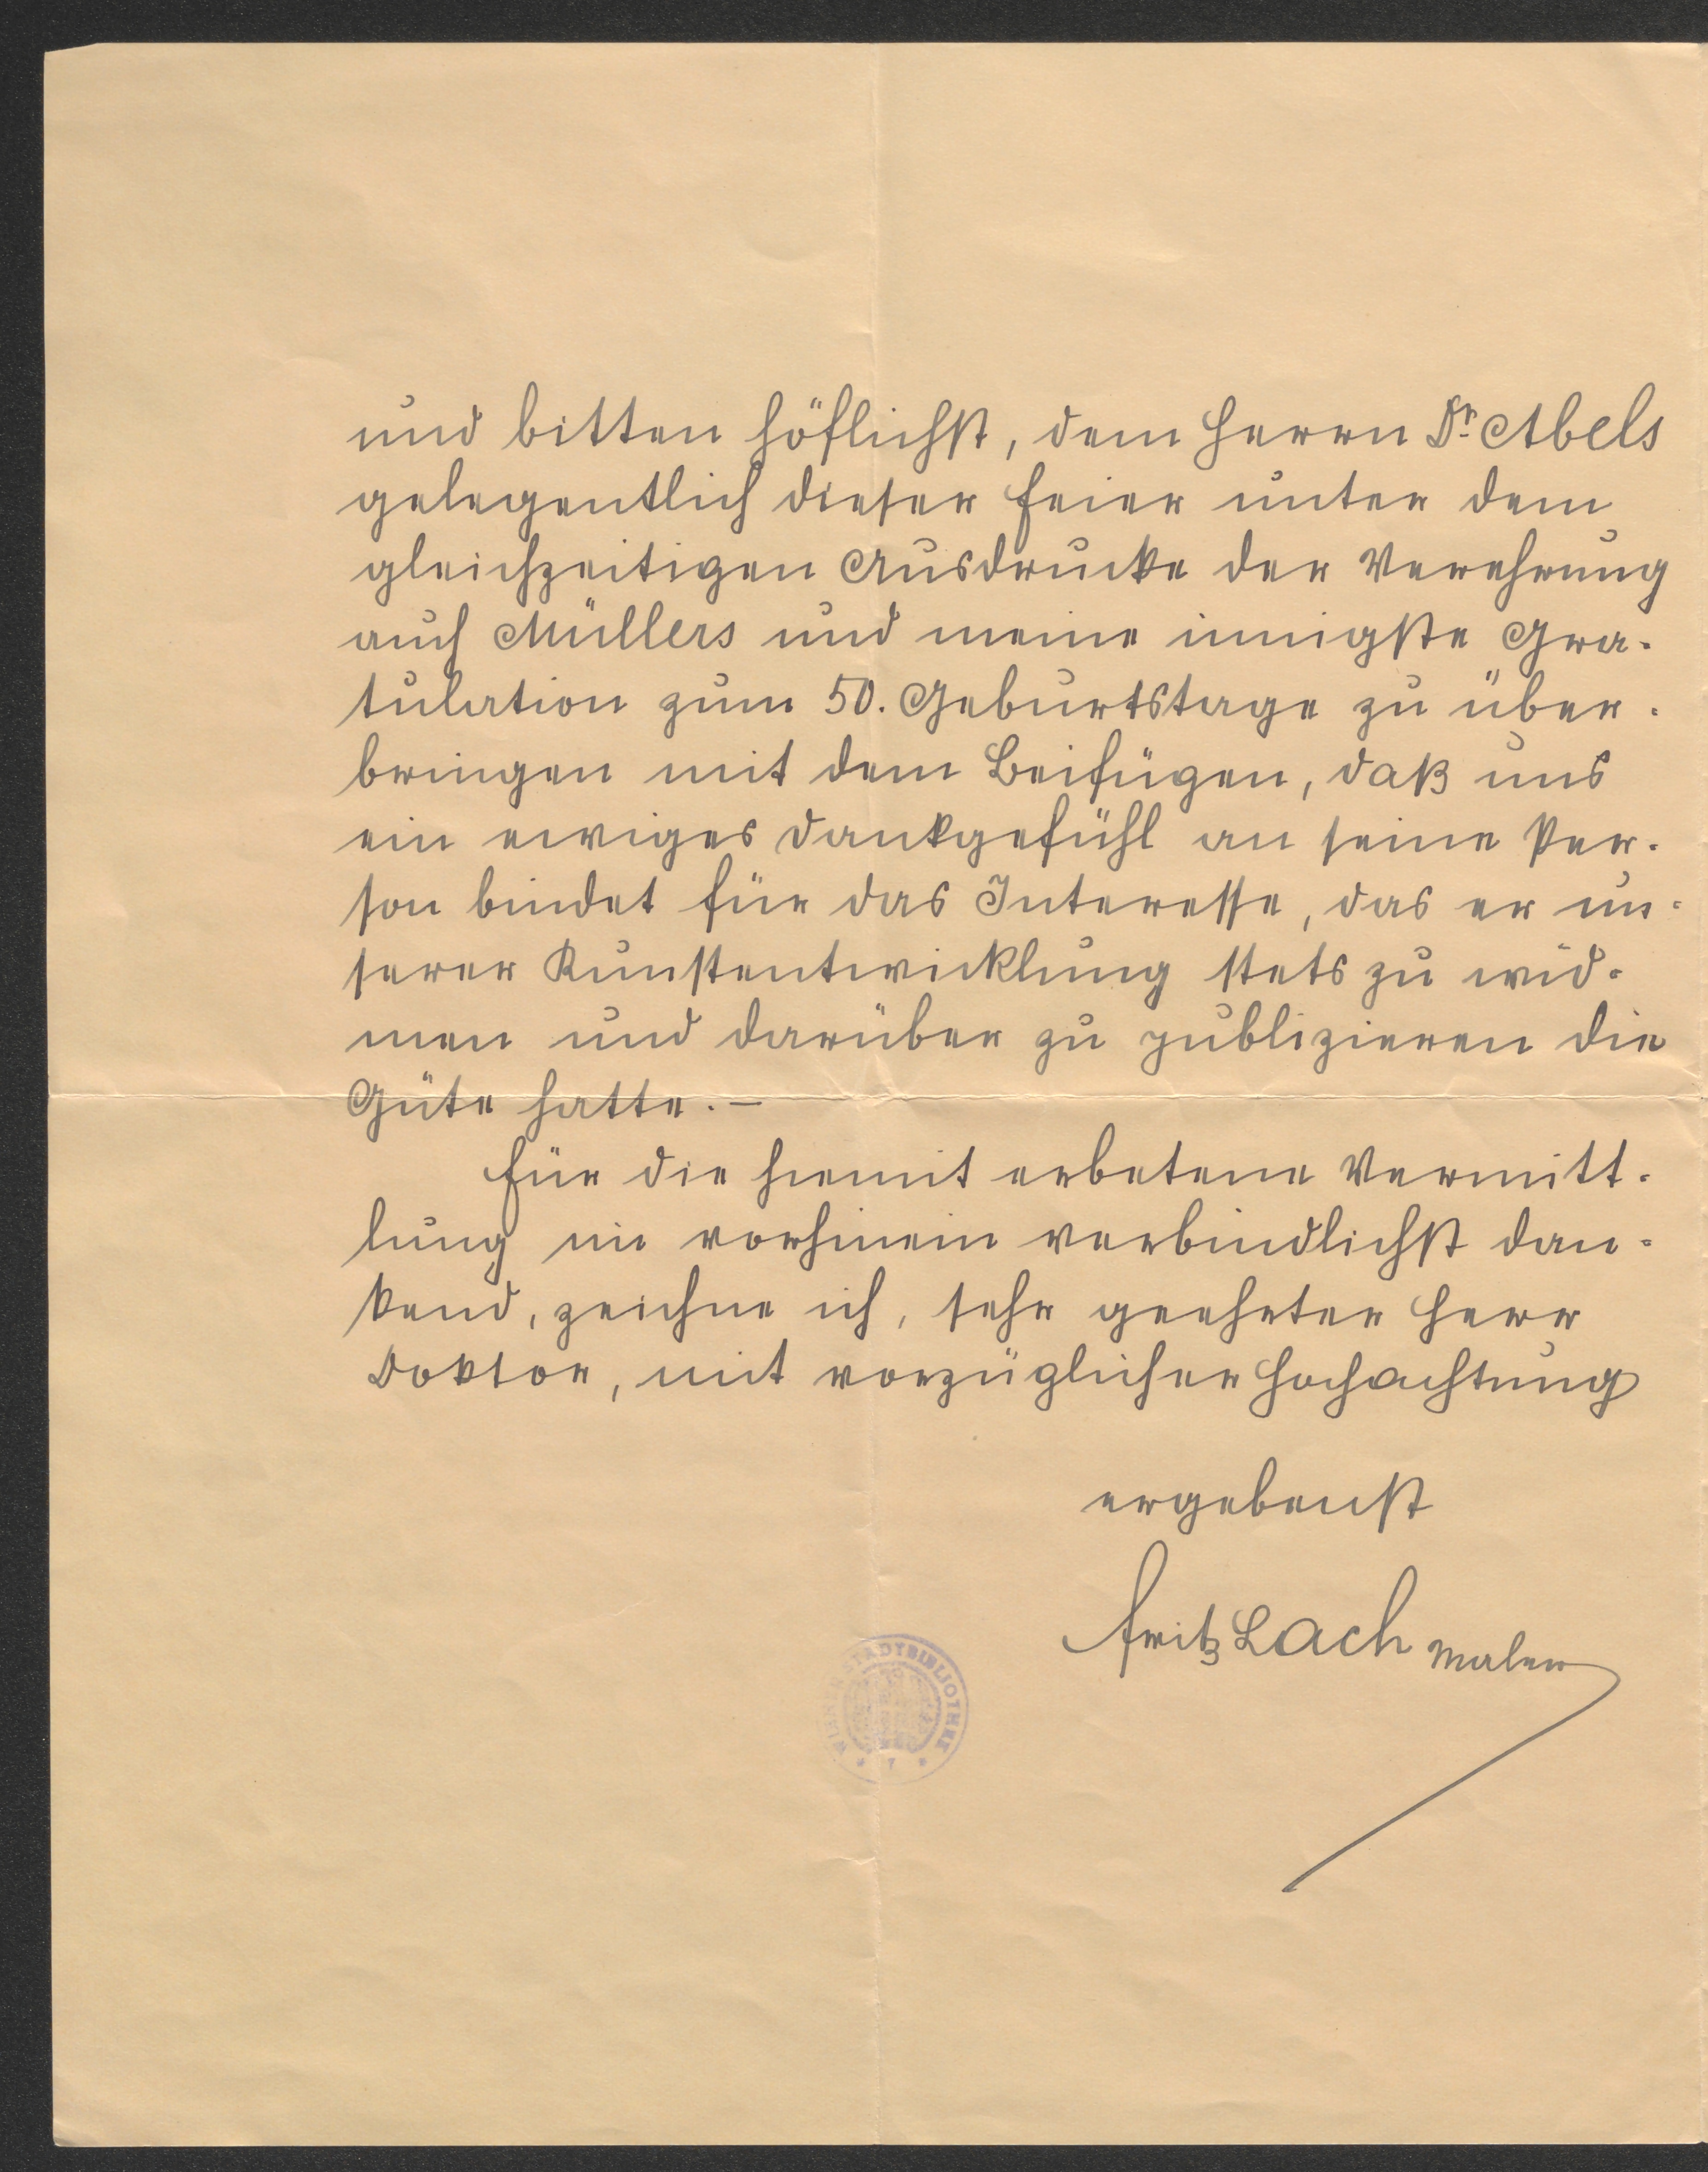 und bitten höflichst, dem Herrn Dr. Abels
gelegentlich dieser Feier unter dem
gleichzeitigen Ausdrucke der Verehrung
auch Müllers und meine innigste Gra-
tulation zum 50. Geburtstage zu über-
bringen mit dem Beifügen, daß uns
ein ewiges Dankgefühl an seine Per-
son bindet für das Interesse, das er un-
serer Kunstentwicklung stets zu wid-
men und darüber zu publizieren die
Güte hatte.—
Für die hiemit erbetene Vermitt-
lung im vorhinein verbindlichst dan-
kend, zeichne ich, sehr geehrter Herr
Doktor, mit vorzüglicher Hochachtung
ergebenst
Fritz Lach Maler
WIENER STADTBIBLIOTHEK
* 7 *